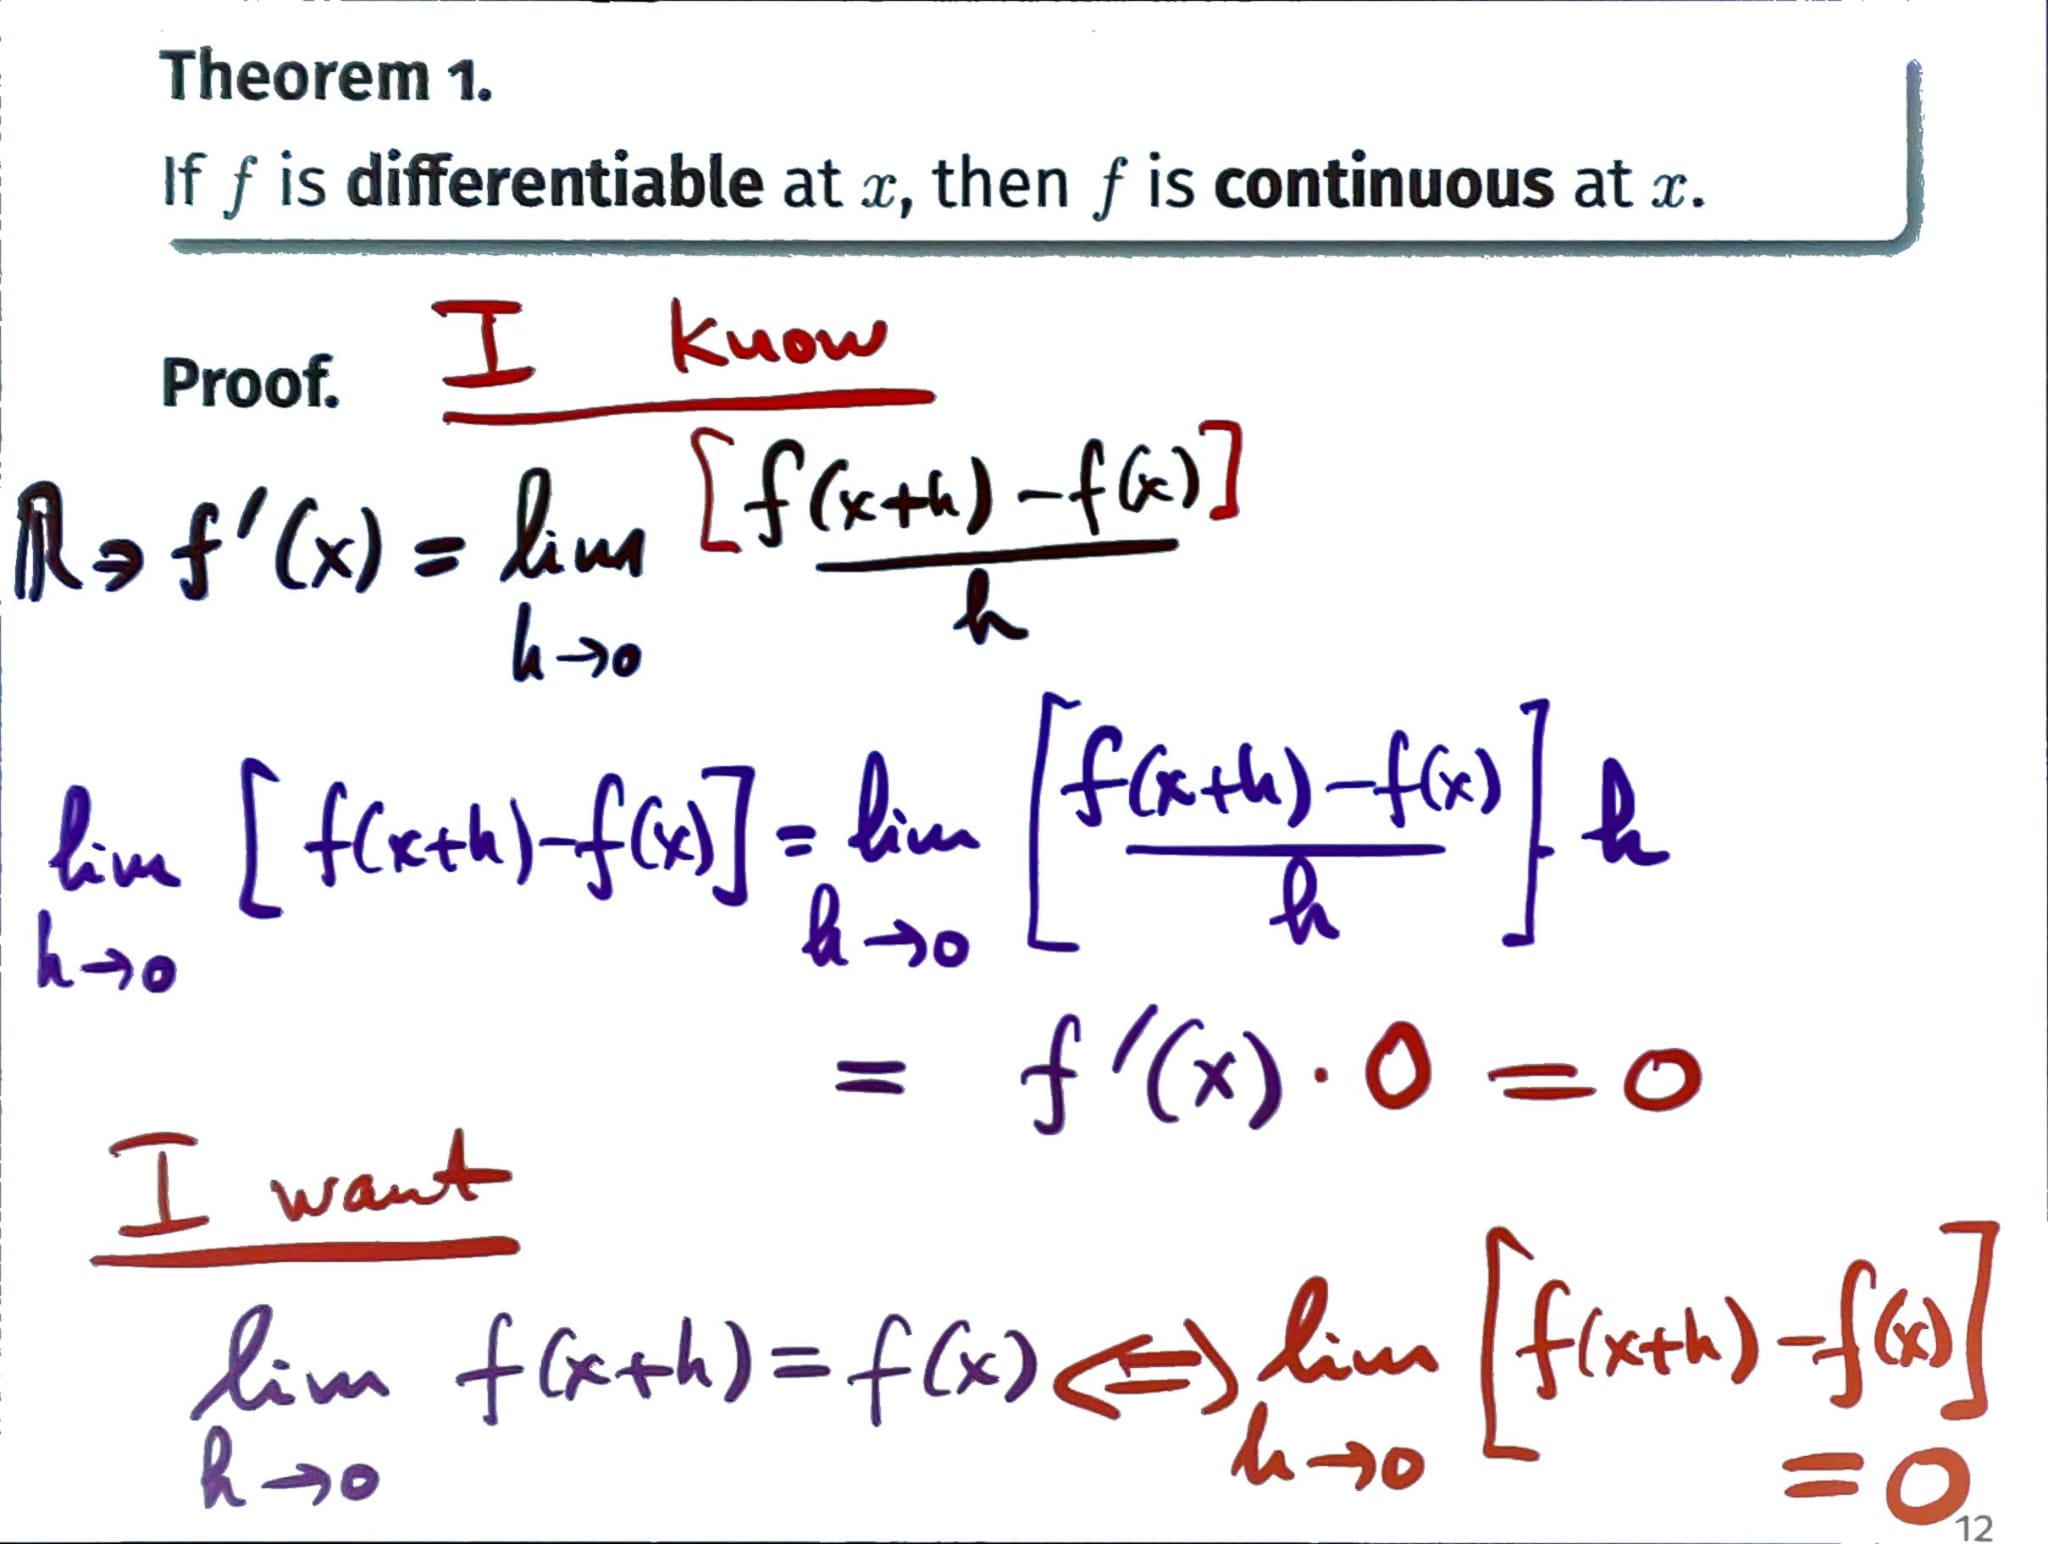 Theorem 1.
If f is differentiable at x, then f is continuous at x.
Proof. I know
ℝ ∋ f'(x) = lim_{h→0} [f(x+h) - f(x)] / h
lim_{h→0} [f(x+h) - f(x)] = lim_{h→0} [(f(x+h) - f(x)) / h] · h
= f'(x) · 0 = 0
I want
lim_{h→0} f(x+h) = f(x) ⇔ lim_{h→0} [f(x+h) - f(x)] = 0
12